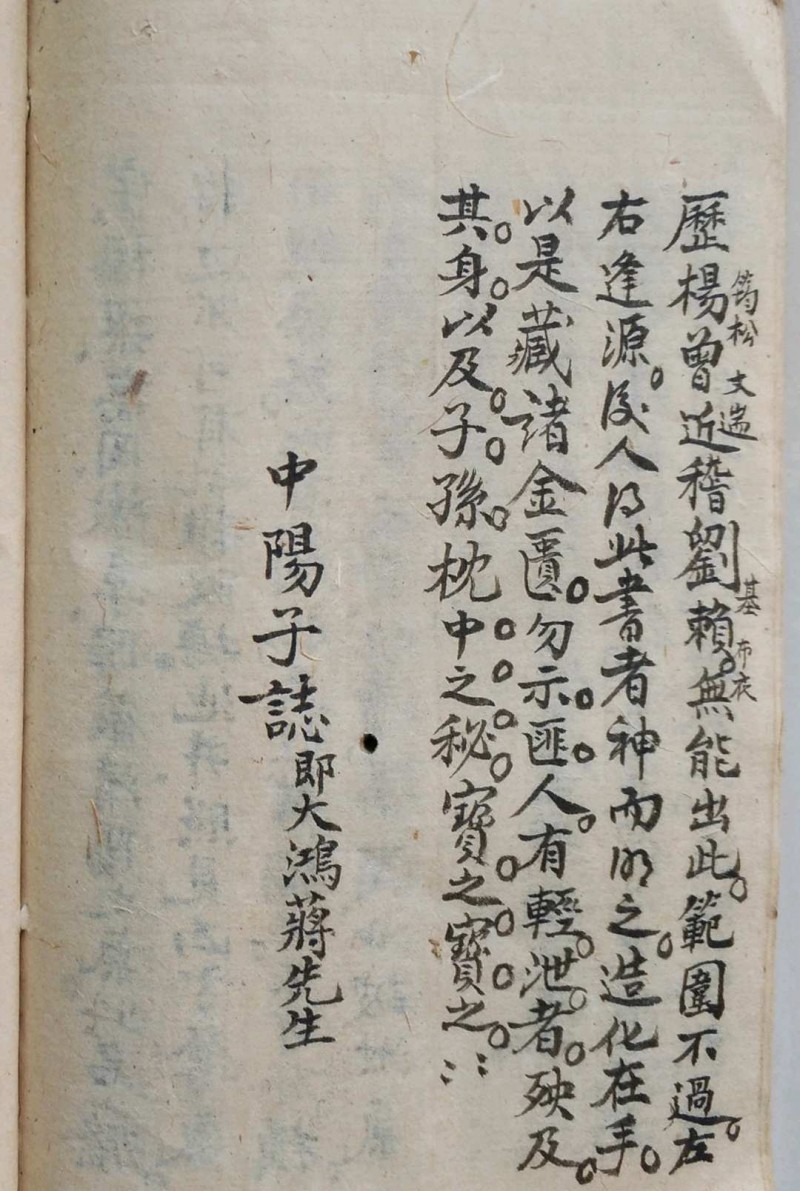 歷楊曾近稽劉賴。無能出此。範圍不過。左
筠松 文遄 基 布衣
右逢源。後人得此書者神而明之。造化在手。
以是藏諸金匱。勿示。匪。人。有輕。泄。者。殃及。
其。身。以及。子。孫。枕中。之。秘。寶。之。寶。之。
中陽子誌即大鴻蔣先生